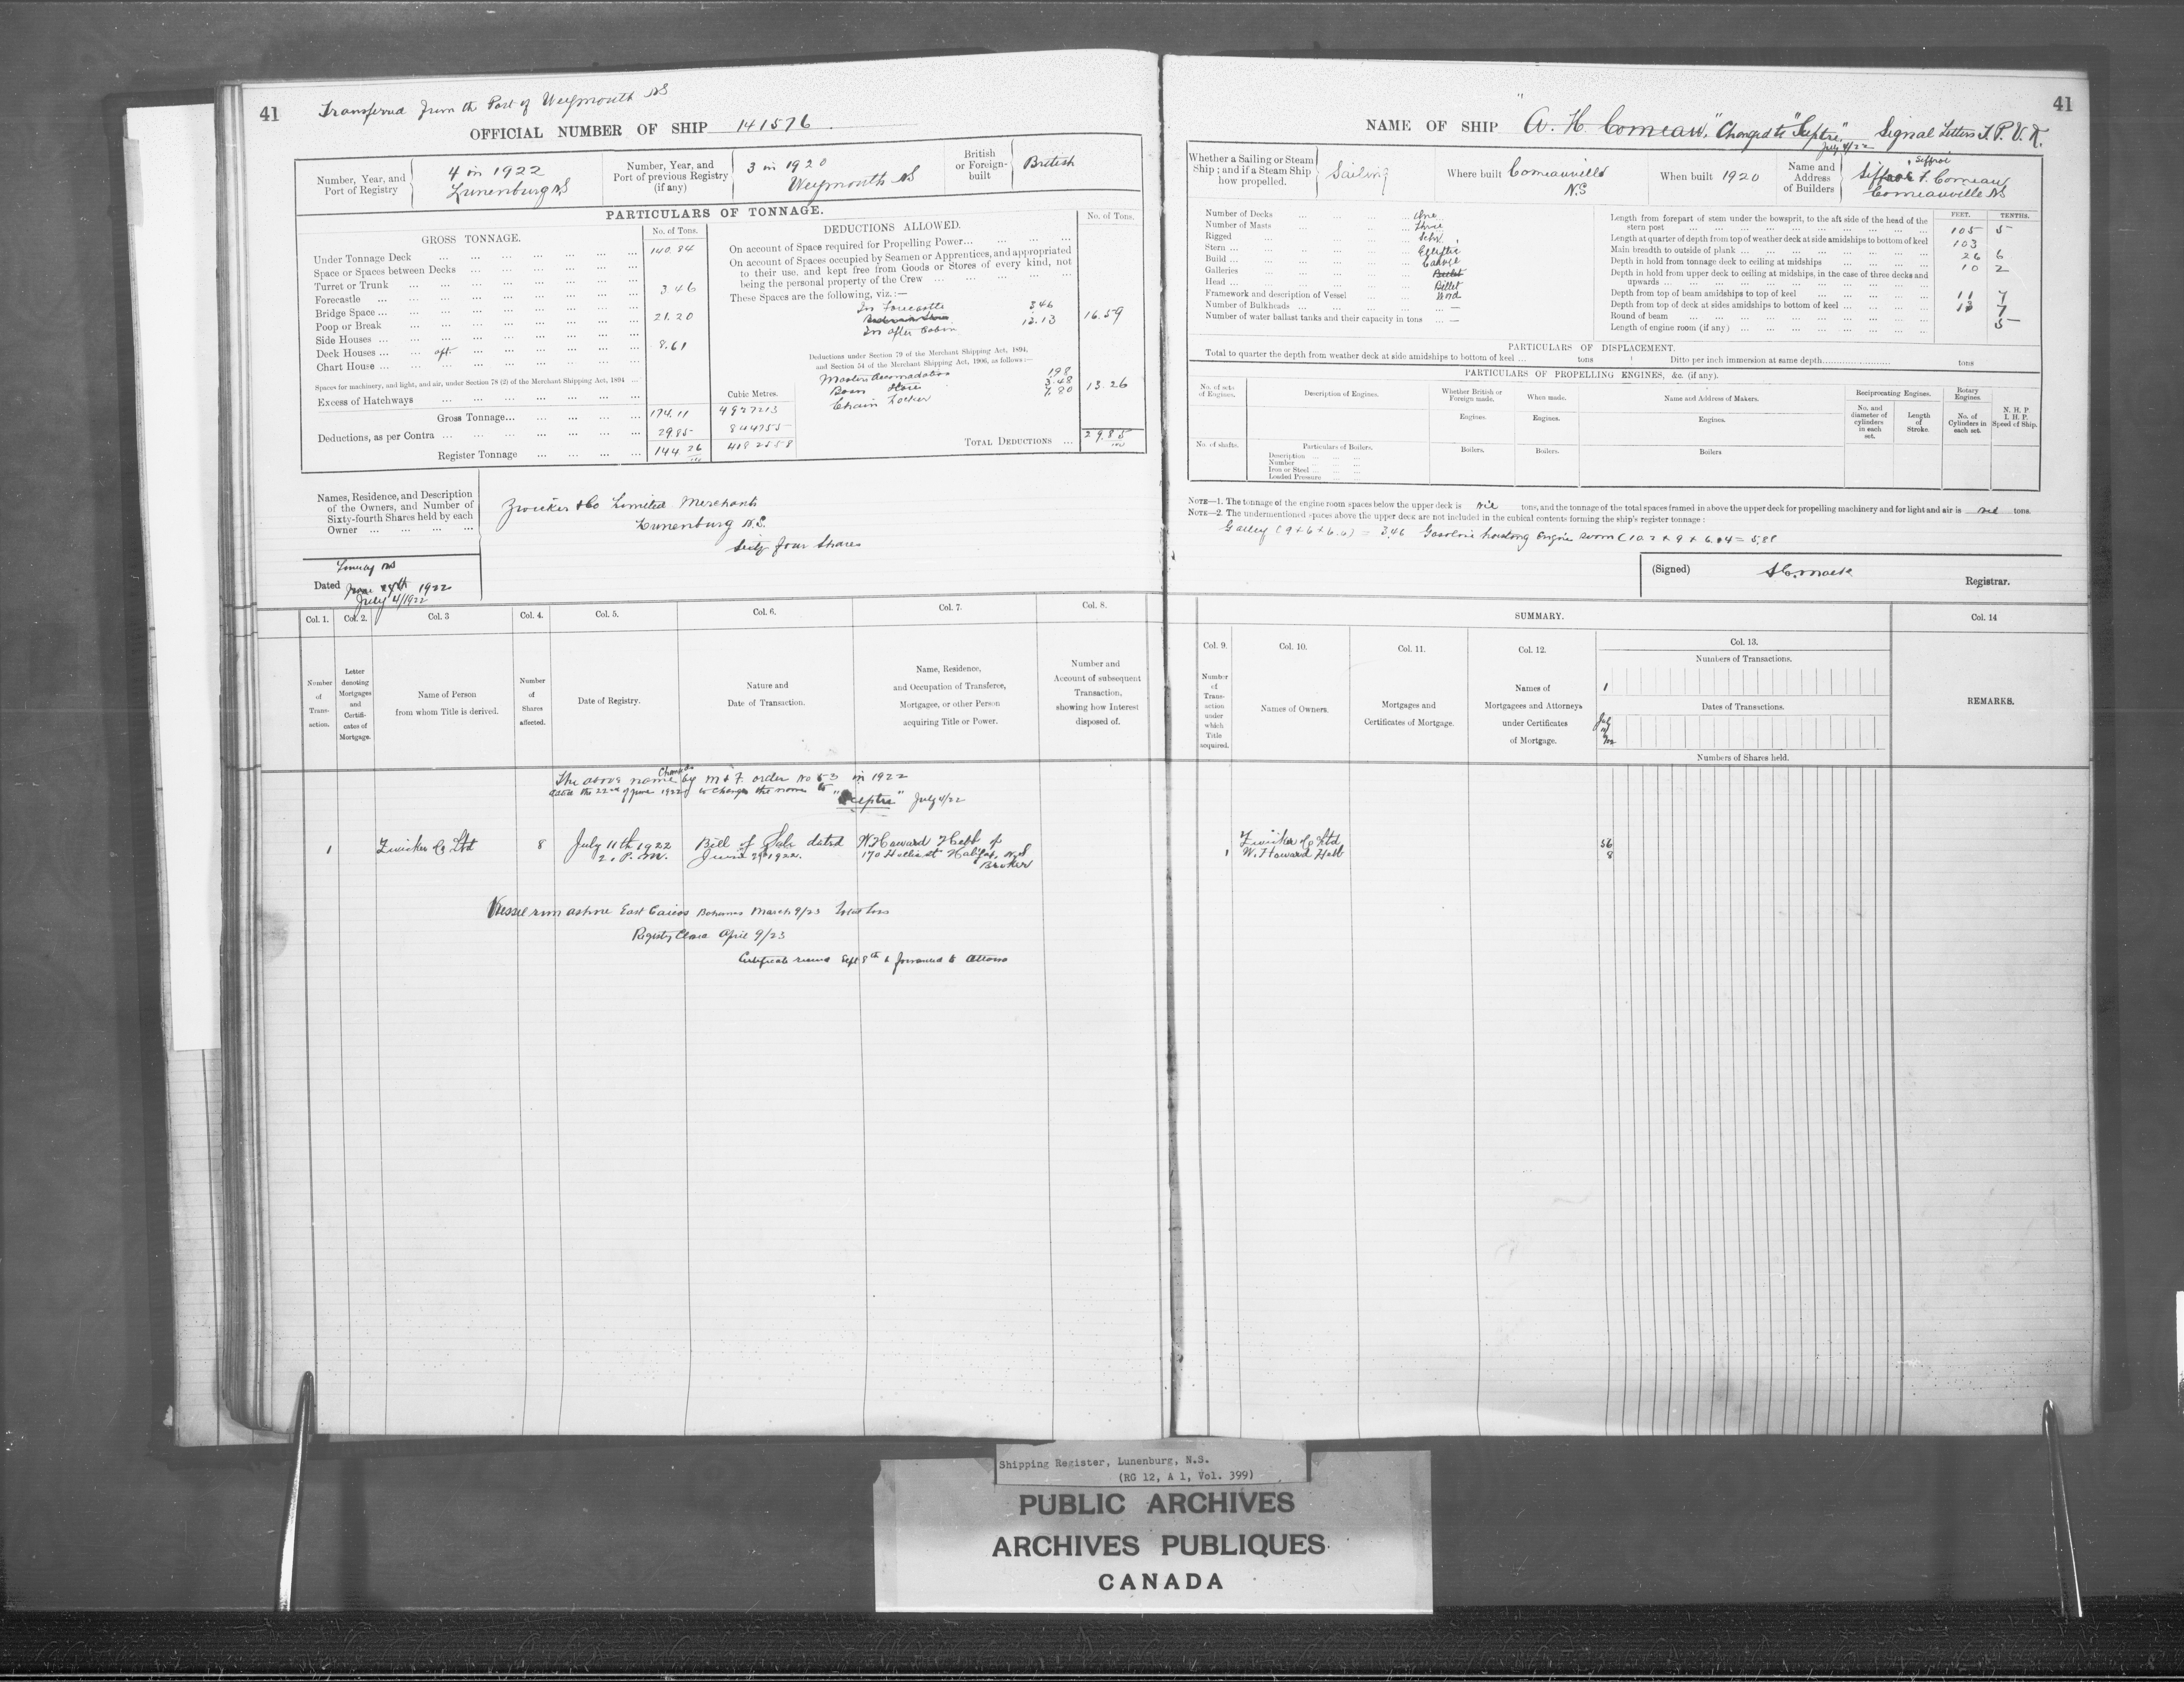 41
Transferred from the Port of Weymouth NS
OFFICIAL NUMBER OF SHIP 141576
Number, Year, and Port of Registry
4 in 1922
Lunenburg NS
Number, Year, and Port of previous Registry (if any)
3 in 1920
Weymouth NS
British or Foreign-built
British
PARTICULARS OF TONNAGE.
GROSS TONNAGE.
No. of Tons.
Under Tonnage Deck ... 140.84
Space or Spaces between Decks ...
Turret or Trunk ...
Forecastle ... 3.46
Bridge Space ...
Poop or Break ... 21.20
Side Houses ...
Deck Houses ... aft. ... 8.61
Chart House ...
Spaces for machinery, and light, and air, under Section 78 (2) of the Merchant Shipping Act, 1894 ...
Excess of Hatchways ...
Cubic Metres.
Gross Tonnage ... 174.11
Deductions, as per Contra ... 29.85
Register Tonnage ... 144.26
DEDUCTIONS ALLOWED.
No. of Tons.
On account of Space required for Propelling Power ...
On account of Spaces occupied by Seamen or Apprentices, and appropriated to their use, and kept free from Goods or Stores of every kind, not being the personal property of the Crew ...
These Spaces are the following, viz.:—
In Forecastle 3.46
In after Cabin 13.13
16.59
Deductions under Section 79 of the Merchant Shipping Act, 1894, and Section 54 of the Merchant Shipping Act, 1906, as follows:—
Masters Accomodation 1.98
Bosn Store 3.48
Chain Locker 7.80
13.26
TOTAL DEDUCTIONS ... 29.85
Names, Residence, and Description of the Owners, and Number of Sixty-fourth Shares held by each Owner ...
Zwicker & Co Limited Merchants
Lunenburg N.S.
Sixty four Shares
Dated
July 4/1922
Col. 1. Col. 2. Col. 3 Col. 4. Col. 5. Col. 6. Col. 7. Col. 8.
Number of Transaction.
Letter denoting Mortgages and Certificates of Mortgage.
Name of Person from whom Title is derived.
Number of Shares affected.
Date of Registry.
Nature and Date of Transaction.
Name, Residence, and Occupation of Transferee, Mortgagee, or other Person acquiring Title or Power.
Number and Account of subsequent Transaction, showing how Interest disposed of.
The above name changed by M & F order No 53 in 1922
dated the 22nd of June 1922 to change the name to
"Sceptre" July 4/22
1 Zwicker & Co Ltd 8 July 11th 1922 Bill of Sale dated W Howard Hebb of
2. P.M. June 29th 1922. 170 Hollis St Halifax N.S
Broker
Vessel run ashore East Caicos Bahamas March 9/23 total loss
Registry Close April 9/23
Certificate received Sept 8th & forwarded to Ottawa
41
NAME OF SHIP "A. H. Comeau," Changed to "Sceptre," Signal Letters T. P. V. K.
July 4/22
Whether a Sailing or Steam Ship; and if a Steam Ship how propelled.
Sailing
Where built Comeauville N.S
When built 1920
Name and Address of Builders
Siffroi
F. Comeau
Comeauville NS
Number of Decks ... One
Number of Masts ... Three
Rigged ... Schr.
Stern ... Elliptic
Build ... Carvel
Galleries ...
Head ... Billet
Framework and description of Vessel ... Wood
Number of Bulkheads ... —
Number of water ballast tanks and their capacity in tons ... —
FEET. TENTHS.
Length from forepart of stem under the bowsprit, to the aft side of the head of the stern post ... 105 5
Length at quarter of depth from top of weather deck at side amidships to bottom of keel 103
Main breadth to outside of plank ... 26 6
Depth in hold from tonnage deck to ceiling at midships ... 10 2
Depth in hold from upper deck to ceiling at midships, in the case of three decks and upwards ...
Depth from top of beam amidships to top of keel ... 11 7
Depth from top of deck at sides amidships to bottom of keel ... 7
Round of beam ... 5
Length of engine room (if any) ...
PARTICULARS OF DISPLACEMENT.
Total to quarter the depth from weather deck at side amidships to bottom of keel ... tons
Ditto per inch immersion at same depth ... tons
PARTICULARS OF PROPELLING ENGINES, &c. (if any).
No. of sets of Engines.
Description of Engines.
Whether British or Foreign made.
When made.
Name and Address of Makers.
Reciprocating Engines.
Rotary Engines.
N. H. P. I. H. P. Speed of Ship.
Engines. Engines. Engines.
No. and diameter of cylinders in each set.
Length of Stroke.
No. of Cylinders in each set.
No. of shafts.
Particulars of Boilers.
Description ...
Number ...
Iron or Steel ...
Loaded Pressure ...
Boilers. Boilers. Boilers
NOTE—1. The tonnage of the engine room spaces below the upper deck is nil tons, and the tonnage of the total spaces framed in above the upper deck for propelling machinery and for light and air is nil tons.
NOTE—2. The undermentioned spaces above the upper deck are not included in the cubical contents forming the ship's register tonnage:
Galley (9 x 6 x 6.0) = 3.46 Gasoline hoisting Engine Room (10.2 x 9 x 6.04 = 5.88
(Signed)
Registrar.
SUMMARY.
Col. 9. Col. 10. Col. 11. Col. 12. Col. 13. Col. 14
Number of Transaction under which Title acquired.
Names of Owners.
Mortgages and Certificates of Mortgage.
Names of Mortgagees and Attorneys under Certificates of Mortgage.
Numbers of Transactions.
1
Dates of Transactions.
July
11
Numbers of Shares held.
REMARKS.
Zwicker & Co Ltd 56
1 W. Howard Hebb 8
Shipping Register, Lunenburg, N.S.
(RG 12, A 1, Vol. 399)
PUBLIC ARCHIVES
ARCHIVES PUBLIQUES
CANADA